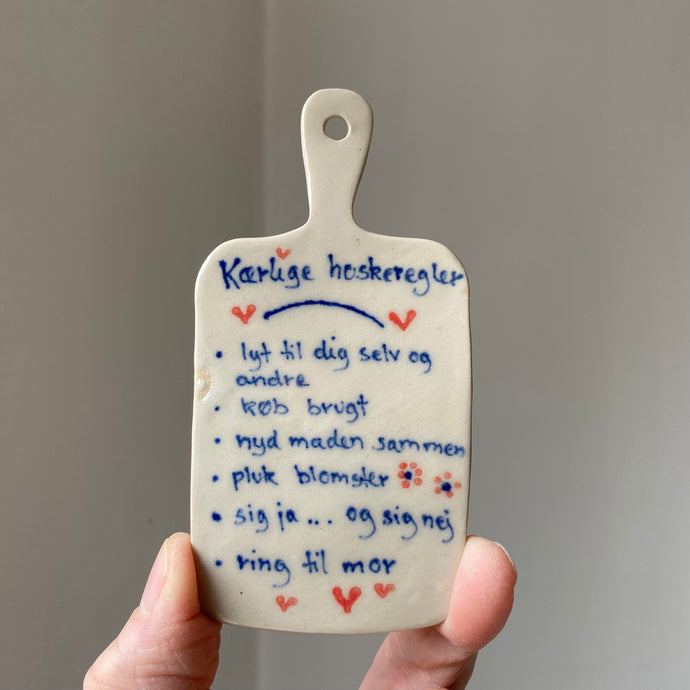 Kærlige huskeregler
• lyt til dig selv og
andre
• køb brugt
• nyd maden sammen
• pluk blomster
• sig ja... og sig nej
• ring til mor